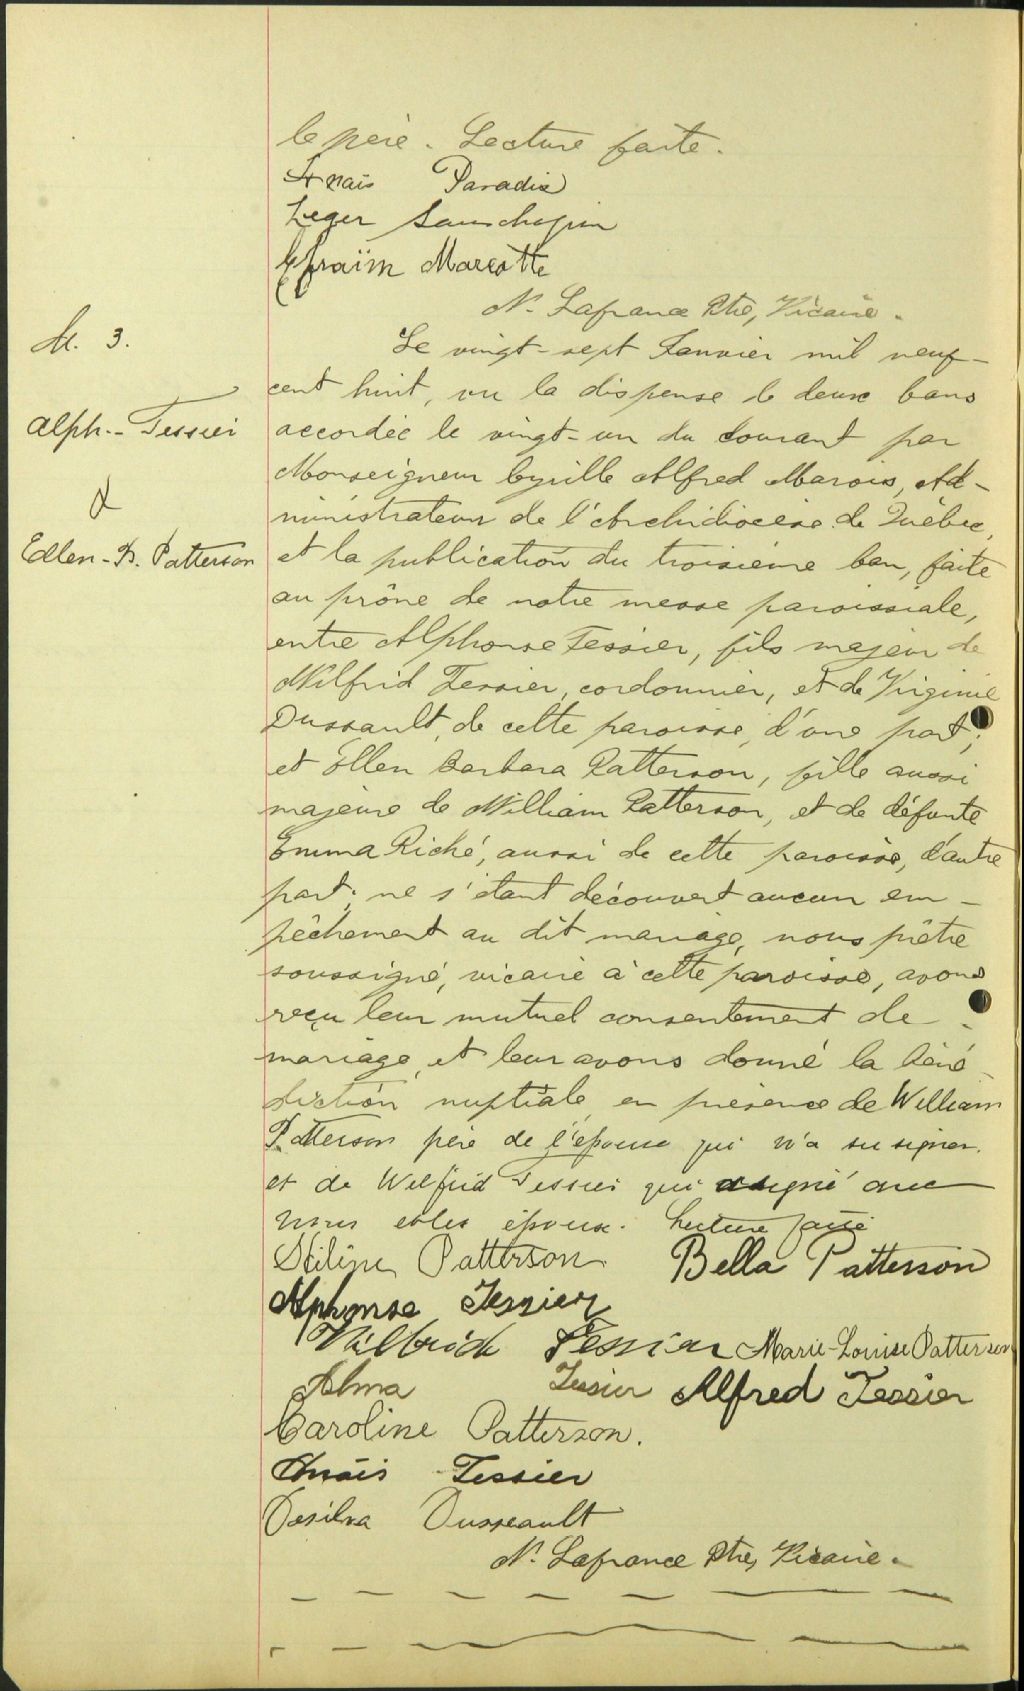 le père. Lecture faite.
Anais Paradis
Leger Sanschagrin
Efraïm Marcotte
N. Lafrance Ptre, Vicaire.
M. 3.
Alph.- Tessier
&
Ellen-B. Patterson
Le vingt-sept Janvier mil neuf-
cent huit, vu la dispense de deux bans
accordée le vingt-un du courant par
Monseigneur Cyrille Alfred Marois, Ad-
ministrateur de l'Archidiocèse de Québec,
et la publication du troisième ban, faite
au prône de notre messe paroissiale,
entre Alphonse Tessier, fils majeur de
Wilfrid Tessier, cordonnier, et de Virginie
Dussault, de cette paroisse, d'une part;
et Ellen Barbara Patterson, fille aussi
majeure de William Patterson, et de défunte
Emma Riché, aussi de cette paroisse, d'autre
part; ne s'étant découvert aucun em-
pêchement au dit mariage, nous prêtre
soussigné, vicaire à cette paroisse, avons
reçu leur mutuel consentement de
mariage, et leur avons donné la béné-
diction nuptiale en présence de William
Patterson père de l'épouse qui n'a su signer
et de Wilfrid Tessier qui a signé avec
nous et les époux. Lecture faite
Patterson Bella Patterson
Alphonse Tessier
Wilfrid Tessier Marie-Louise Patterson
Alma Tessier Alfred Tessier
Caroline Patterson.
Anaïs Tessier
Désilva Dusseault
N. Lafrance Ptre, Vicaire.